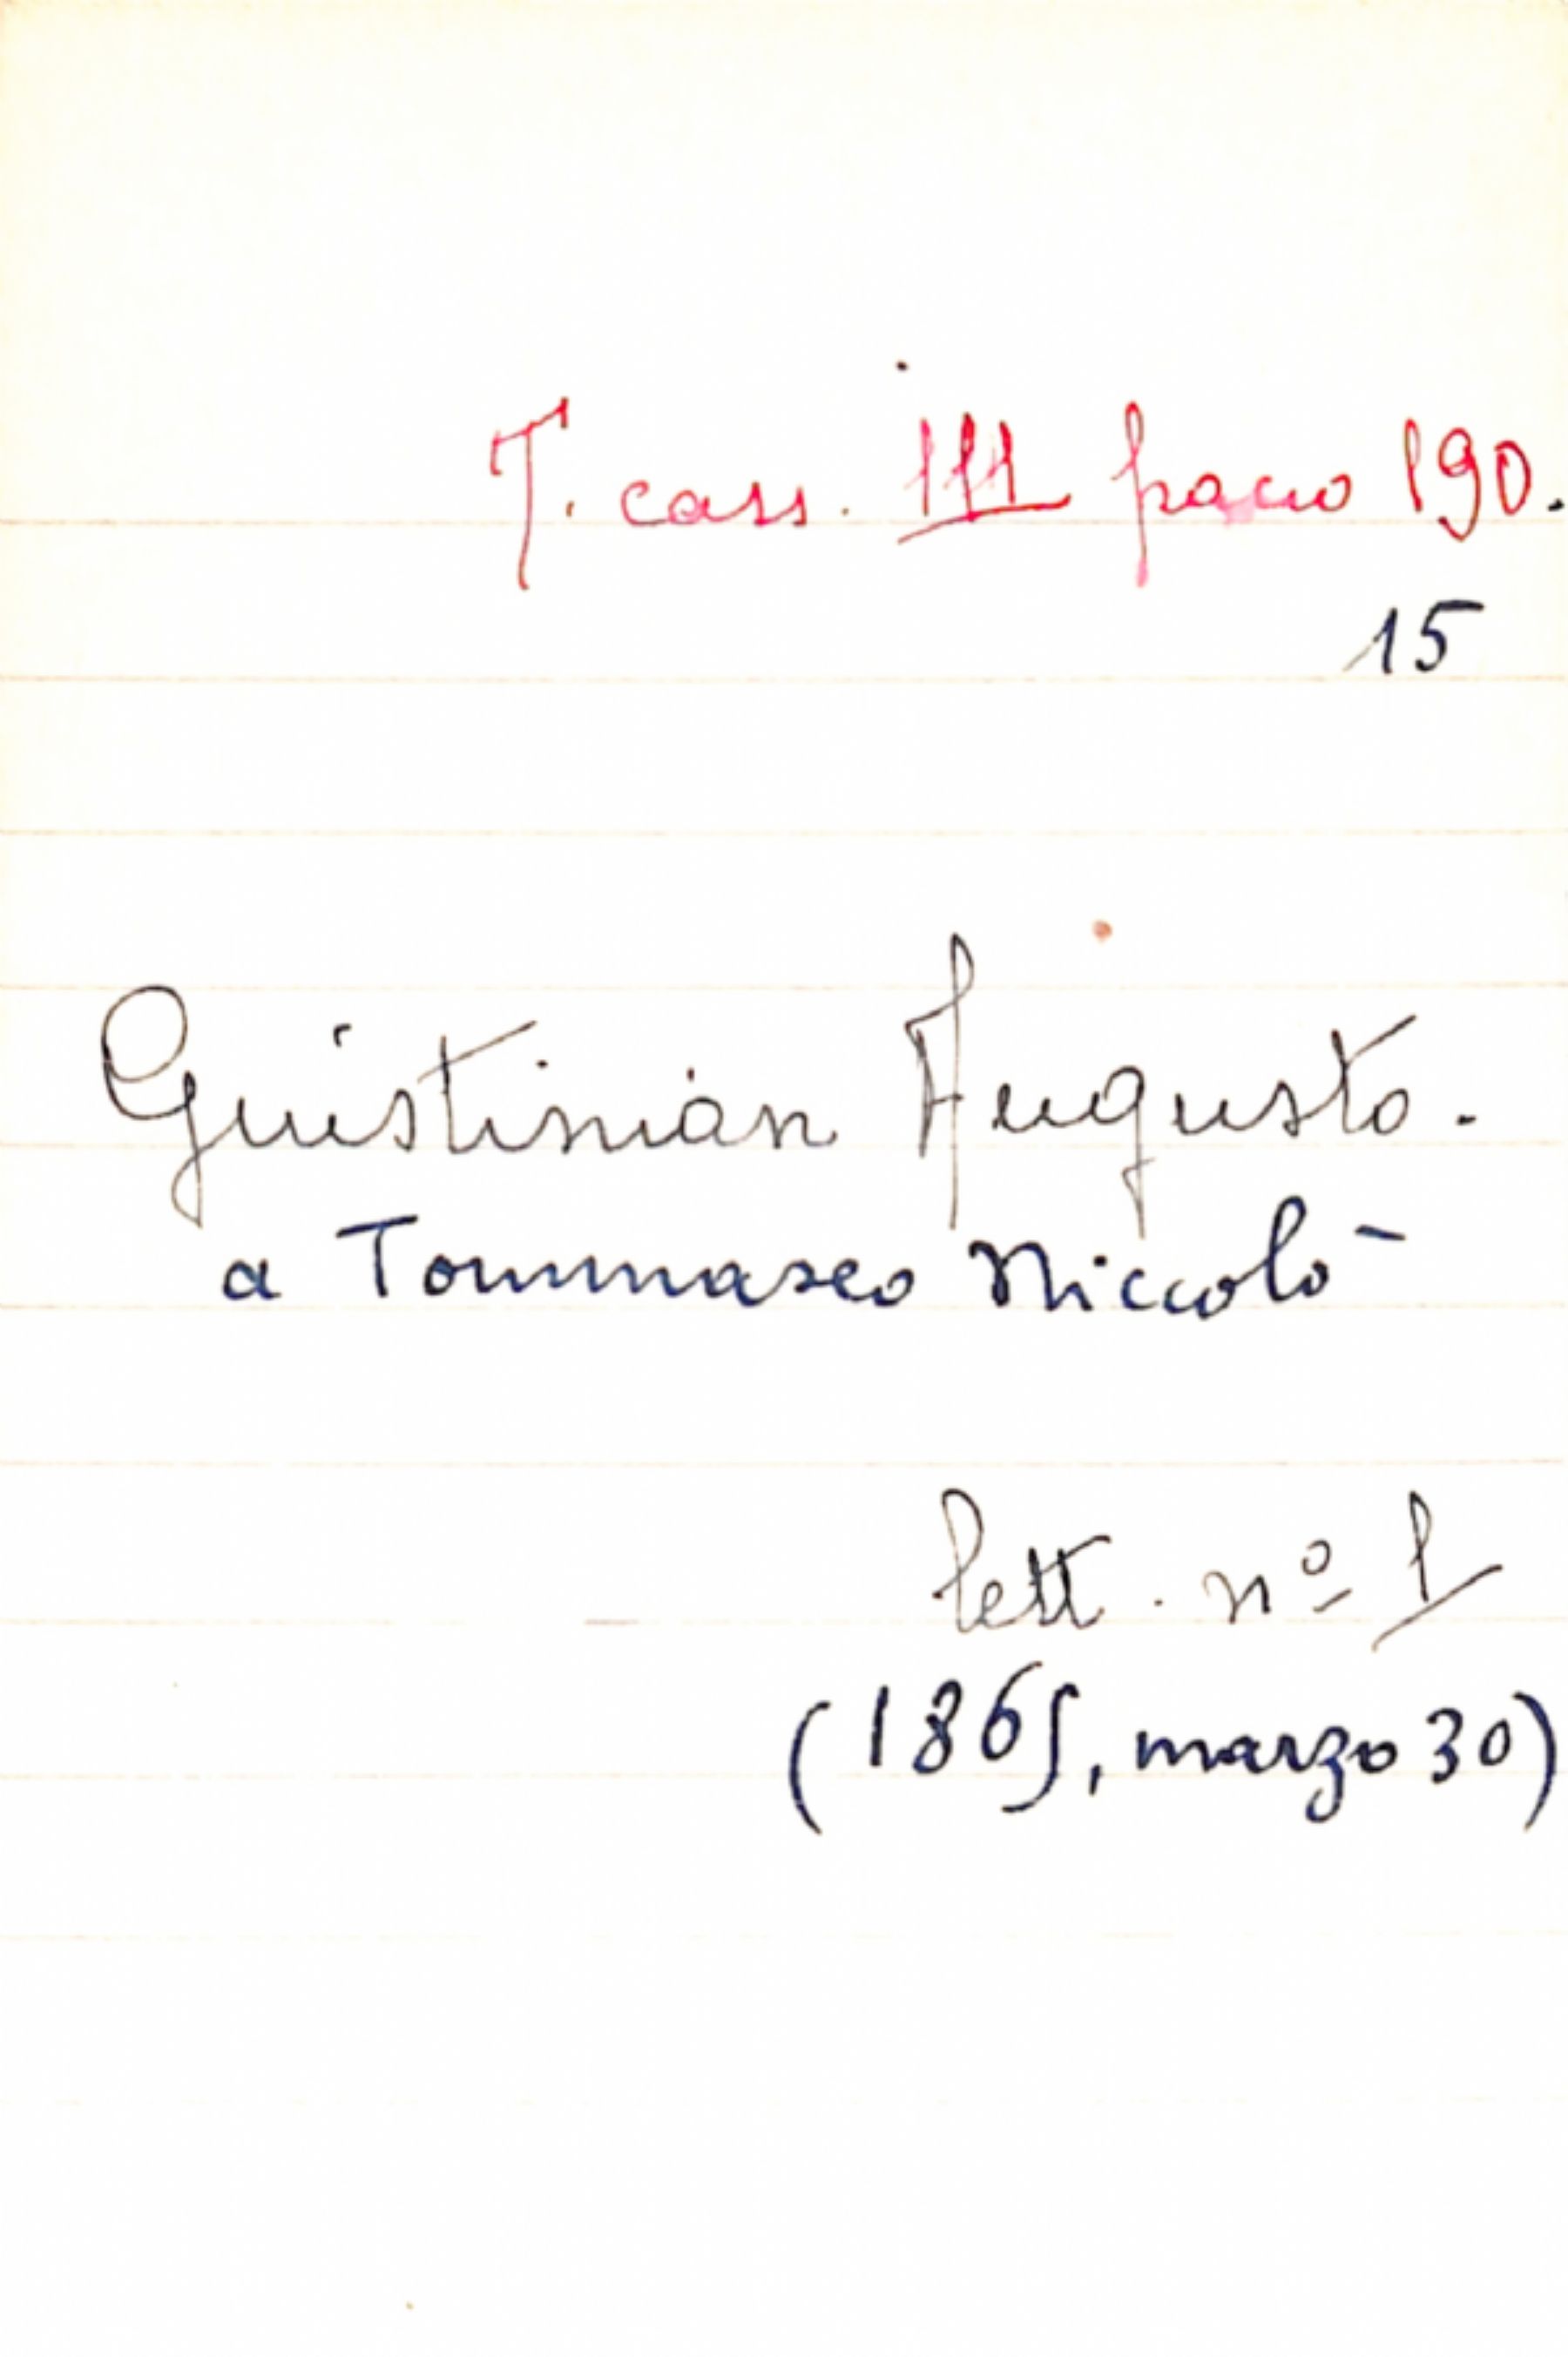 T. cass. III pacco 190.
15
Giustinian Augusto.
a Tommaseo Niccolò
lett. nº 1
(1865, marzo 30)